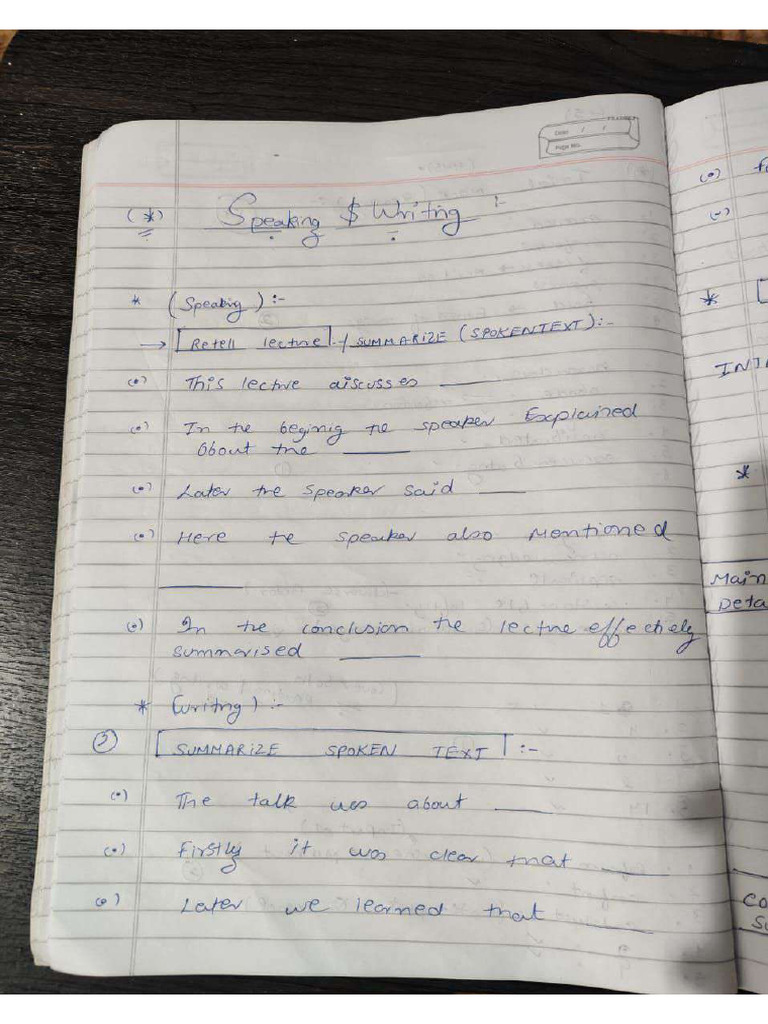 Date / /
Page No.
(*) Speaking $ Writing :-
* (Speaking) :-
→ Retell lecture / SUMMARIZE (SPOKENTEXT):-
(•) This lective discusses ____
(•) In the beginig the speaker Explained
about the ____
(•) Later the speaker said ____
(•) Here the speaker also Mentioned
____
(•) In the conclusion the lectue effectiely
summarised ____
* (writng) :-
② SUMMARIZE SPOKEN TEXT :-
(•) The talk was about ____
(•) Firstly it was clear that ____
(•) Later we learned that ____
(•)
(-)
*
*
Main
Deta
CO